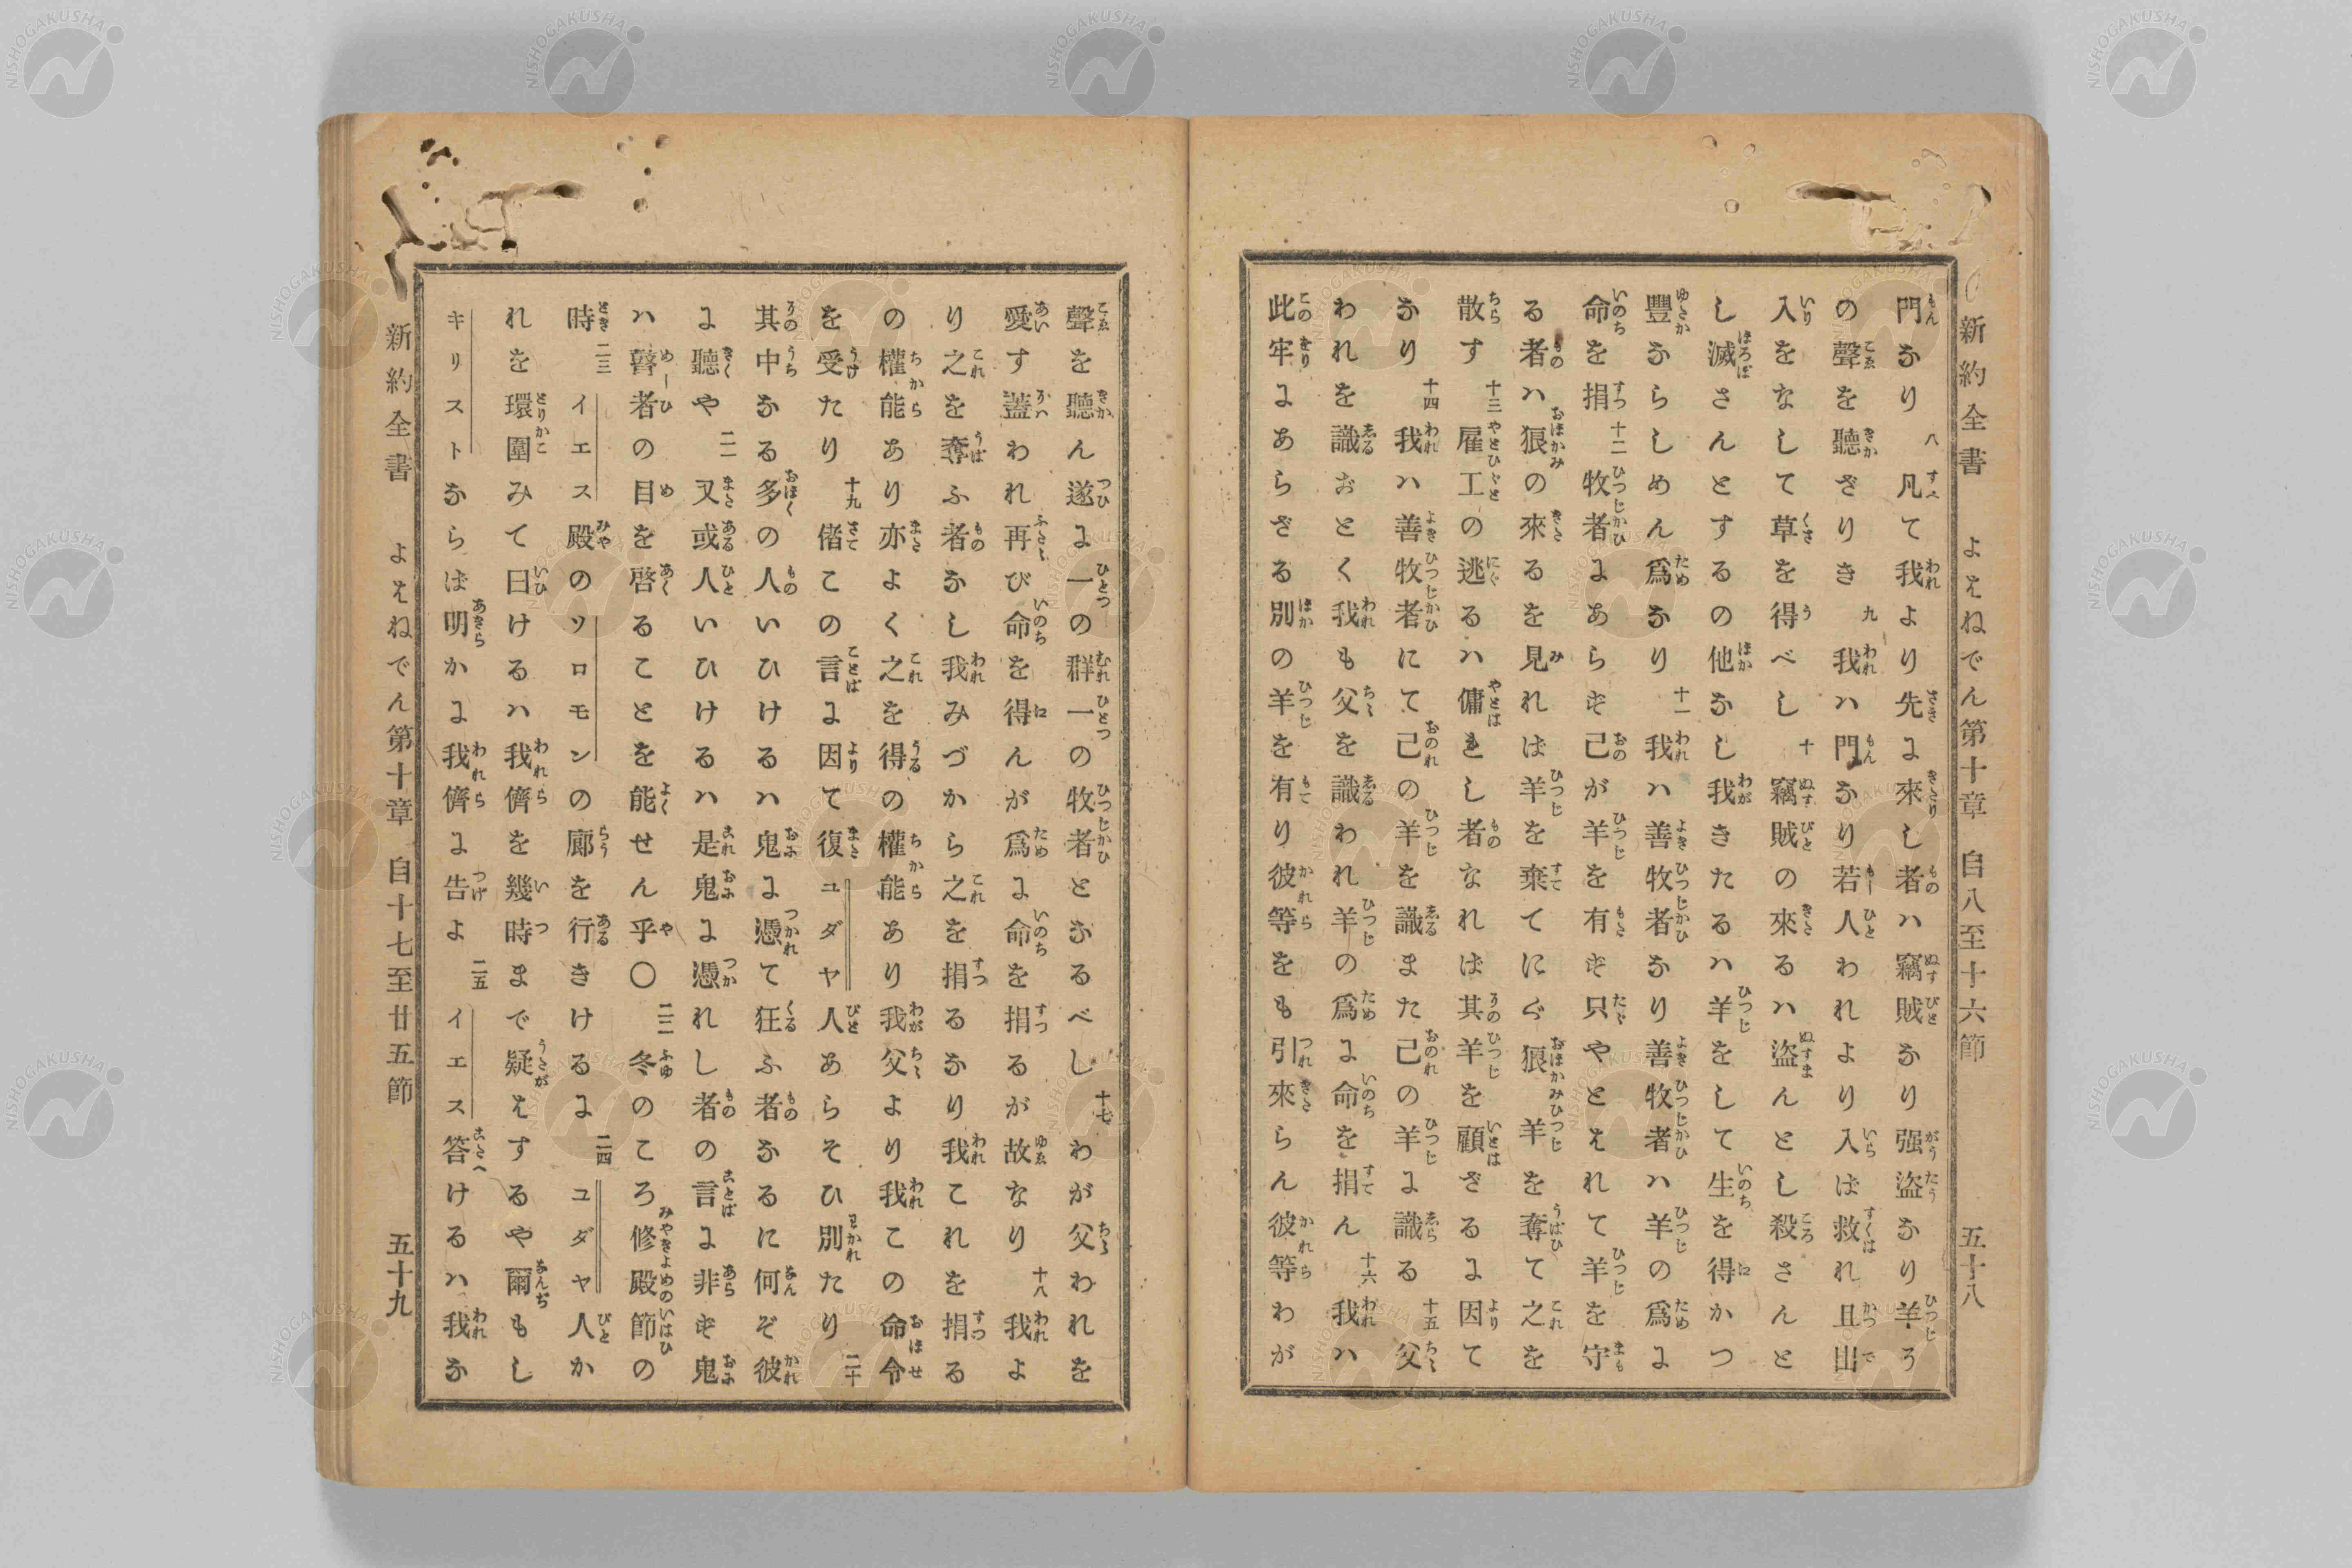 新約全書 よはねでん第十章 自八至十六節 五十八
門なり 八 凡て我より先に來し者ハ竊賊なり强盜なり羊う
の聲を聽ざりき 九 我ハ門なり若人われより入ば救れ且出
入をなして草を得べし 十 竊賊の來るハ盜んとし殺さんと
し滅さんとするの他なし我きたるハ羊をして生を得かつ
豐ならしめん爲なり 十一 我ハ善牧者なり善牧者ハ羊の爲に
命を捐 十二 牧者にあらず己が羊を有ず只やとはれて羊を守
る者ハ狼の來るを見れば羊を棄てにぐ狼羊を奪て之を
散す 十三 雇工の逃るハ傭とし者なれば其羊を顧ざるに因て
なり 十四 我ハ善牧者にて己の羊を識また己の羊に識る 十五 父
われを識おとく我も父を識われ羊の爲に命を捐ん 十六 我ハ
此牢にあらざる別の羊を有り彼等をも引來らん彼等わが
聲を聽ん遂に一の群一の牧者となるべし 十七 わが父われを
愛す蓋われ再び命を得んが爲に命を捐るが故なり 十八 我よ
り之を奪ふ者なし我みづから之を捐るなり我これを捐る
の權能あり亦よく之を得るの權能あり我父より我この命令
を受たり 十九 偖この言に因て復ユダヤ人あらそひ別たり 二十
其中なる多の人いひけるハ鬼に憑て狂ふ者なるに何ぞ彼
に聽や 二一 又或人いひけるハ是鬼に憑れし者の言に非ず鬼
ハ瞽者の目を啓ることを能せん乎〇 二二 冬のころ修殿節の
時 二三 イエス殿のソロモンの廊を行きけるに 二四 ユダヤ人か
れを環圍みて曰けるハ我儕を幾時まで疑はするや爾もし
キリストならば明かに我儕に告よ 二五 イエス答けるハ我な
新約全書 よはねでん第十章 自十七至廿五節 五十九
NISHOGAKUSHA